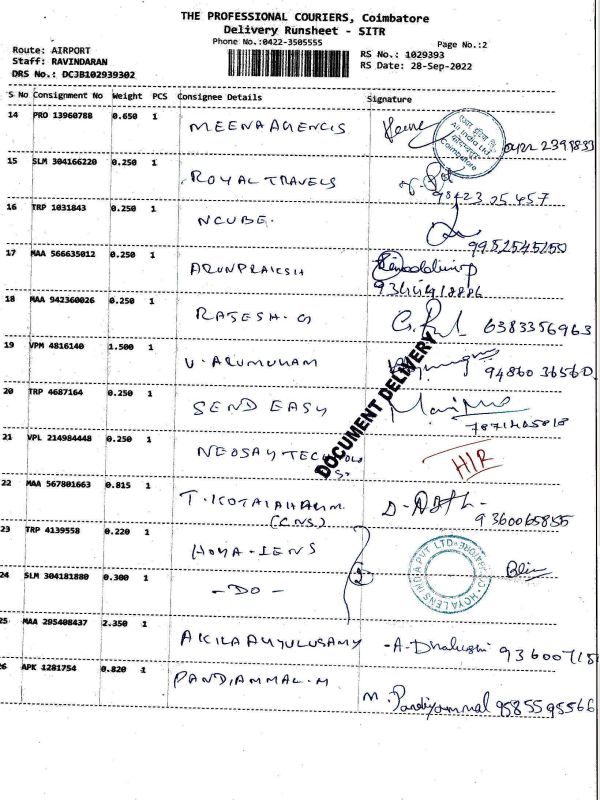 THE PROFESSIONAL COURIERS, Coimbatore
Delivery Runsheet - SITR
Phone No.:0422-3505555
Page No.:2
Route: AIRPORT
Staff: RAVINDARAN
DRS No.: DCJB102939302
RS No.: 1029393
RS Date: 28-Sep-2022
S No Consignment No Weight PCS Consignee Details Signature
14 PRO 13960788 0.650 1 MEENA AGENCIS
Air India Ltd
Coimbatore
15 SLM 304166220 0.250 1 ROYAL TRAVELS
98423 25457
16 TRP 1031843 0.250 1 NCUBE.
17 MAA 566635012 0.250 1 ARUNPRAKSH
18 MAA 942360026 0.250 1 RAJESH. G
6383356963
19 VPM 4816140 1.500 1 V. ARUMUHAM
94860 36560
20 TRP 4687164 0.250 1 SEND EASY
21 VPL 214984448 0.250 1
HIR
22 MAA 567801663 0.815 1
(C.NS.)
9360065855
23 TRP 4139558 0.220 1 HOYA-LENS
HOYA LENS INDIA PVT LTD
24 SLM 304181880 0.300 1 -DO-
2
25 MAA 295408437 2.350 1
26 APK 1281754 0.820 1 PANDIAMMAL-M
M. Pandiyammal 9585595566
DOCUMENT DELIVERY